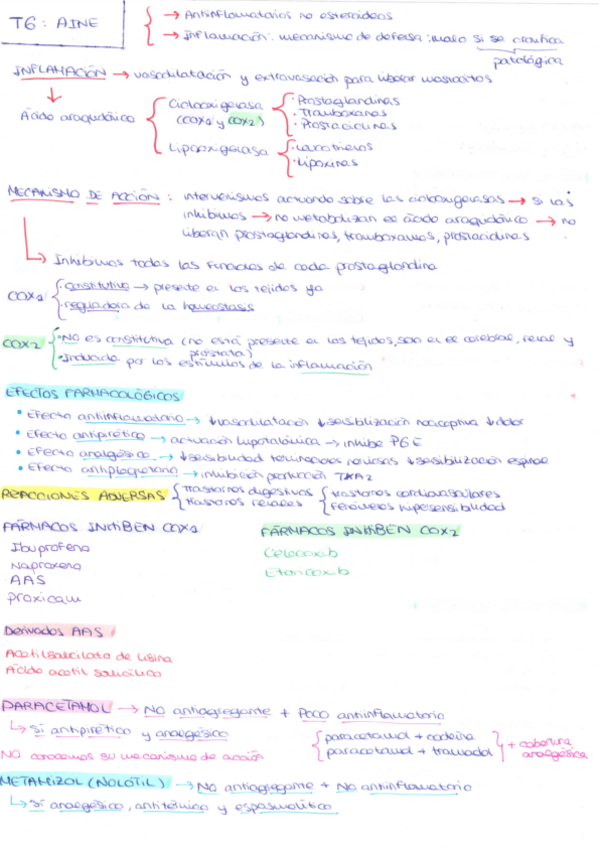 T6: AINE
→ Antiinflamatorios no esteroideos
→ Inflamación: mecanismo de defensa: malo si se cronifica
patológica
INFLAMACIÓN → vasodilatación y extravasación para liberar mastocitos
Ácido araquidónico
Ciclooxigenasa
(COX1 y COX2)
· Prostaglandinas
· Tromboxanos
· Prostaciclinas
Lipooxigenasa
· Leucotrienos
· Lipoxinas
MECANISMO DE ACCIÓN: intervenimos actuando sobre las ciclooxigenasas → si las
inhibimos → no metabolizan el ácido araquidónico → no
liberan prostaglandinas, tromboxanos, prostaciclinas
Inhibimos todas las funciones de cada prostaglandina
COX1
constitutiva → presente en los tejidos ya
reguladora de la homeostasis
COX2
· NO es constitutiva (no está presente en los tejidos, salvo en el cerebral, renal y
próstata)
· Inducida por los estímulos de la inflamación
EFECTOS FARMACOLÓGICOS
• Efecto antiinflamatorio → ↓vasodilatación ↓sensibilización nociceptiva ↓dolor
• Efecto antipirético → actuación hipotalámica → inhibe PGE
• Efecto analgésico → ↓sensibilidad terminaciones nerviosas ↓sensibilización espinal
• Efecto antiplaquetario → inhibición producción TXA2
REACCIONES ADVERSAS
Trastornos digestivos
Trastornos renales
trastornos cardiovasculares
Fenómenos hipersensibilidad
FÁRMACOS INHIBEN COX1
Ibuprofeno
Naproxeno
AAS
Proxicam
FÁRMACOS INHIBEN COX2
Celecoxib
Etoricoxib
Derivados AAS
Acetilsalicilato de lisina
Ácido acetil salicílico
PARACETAMOL → NO antiagregante + Poco antiinflamatorio
↳ Sí antipirético y analgésico
NO conocemos su mecanismo de acción
paracetamol + codeína
paracetamol + tramadol
+ cobertura
analgésica
METAMIZOL (NOLOTIL) → No antiagregante + No antiinflamatorio
↳ Sí analgésico, antitérmico y espasmolítico